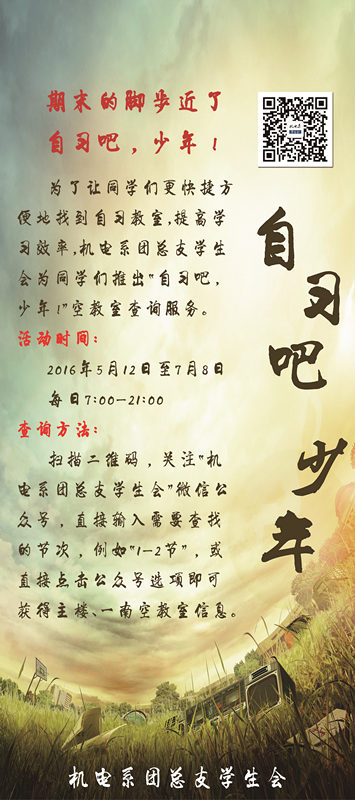 期末的脚步近了
自习吧，少年！
为了让同学们更快捷方
便地找到自习教室，提高学
习效率，机电系团总支学生
会为同学们推出“自习吧，
少年！”空教室查询服务。
活动时间：
2016年5月12日至7月8日
每日7:00—21:00
查询方法：
扫描二维码，关注“机
电系团总支学生会”微信公
众号，直接输入需要查找
的节次，例如“1-2节”，或
直接点击公众号选项即可
获得主楼、一南空教室信息。
自习吧
少年
机电系团总支学生会